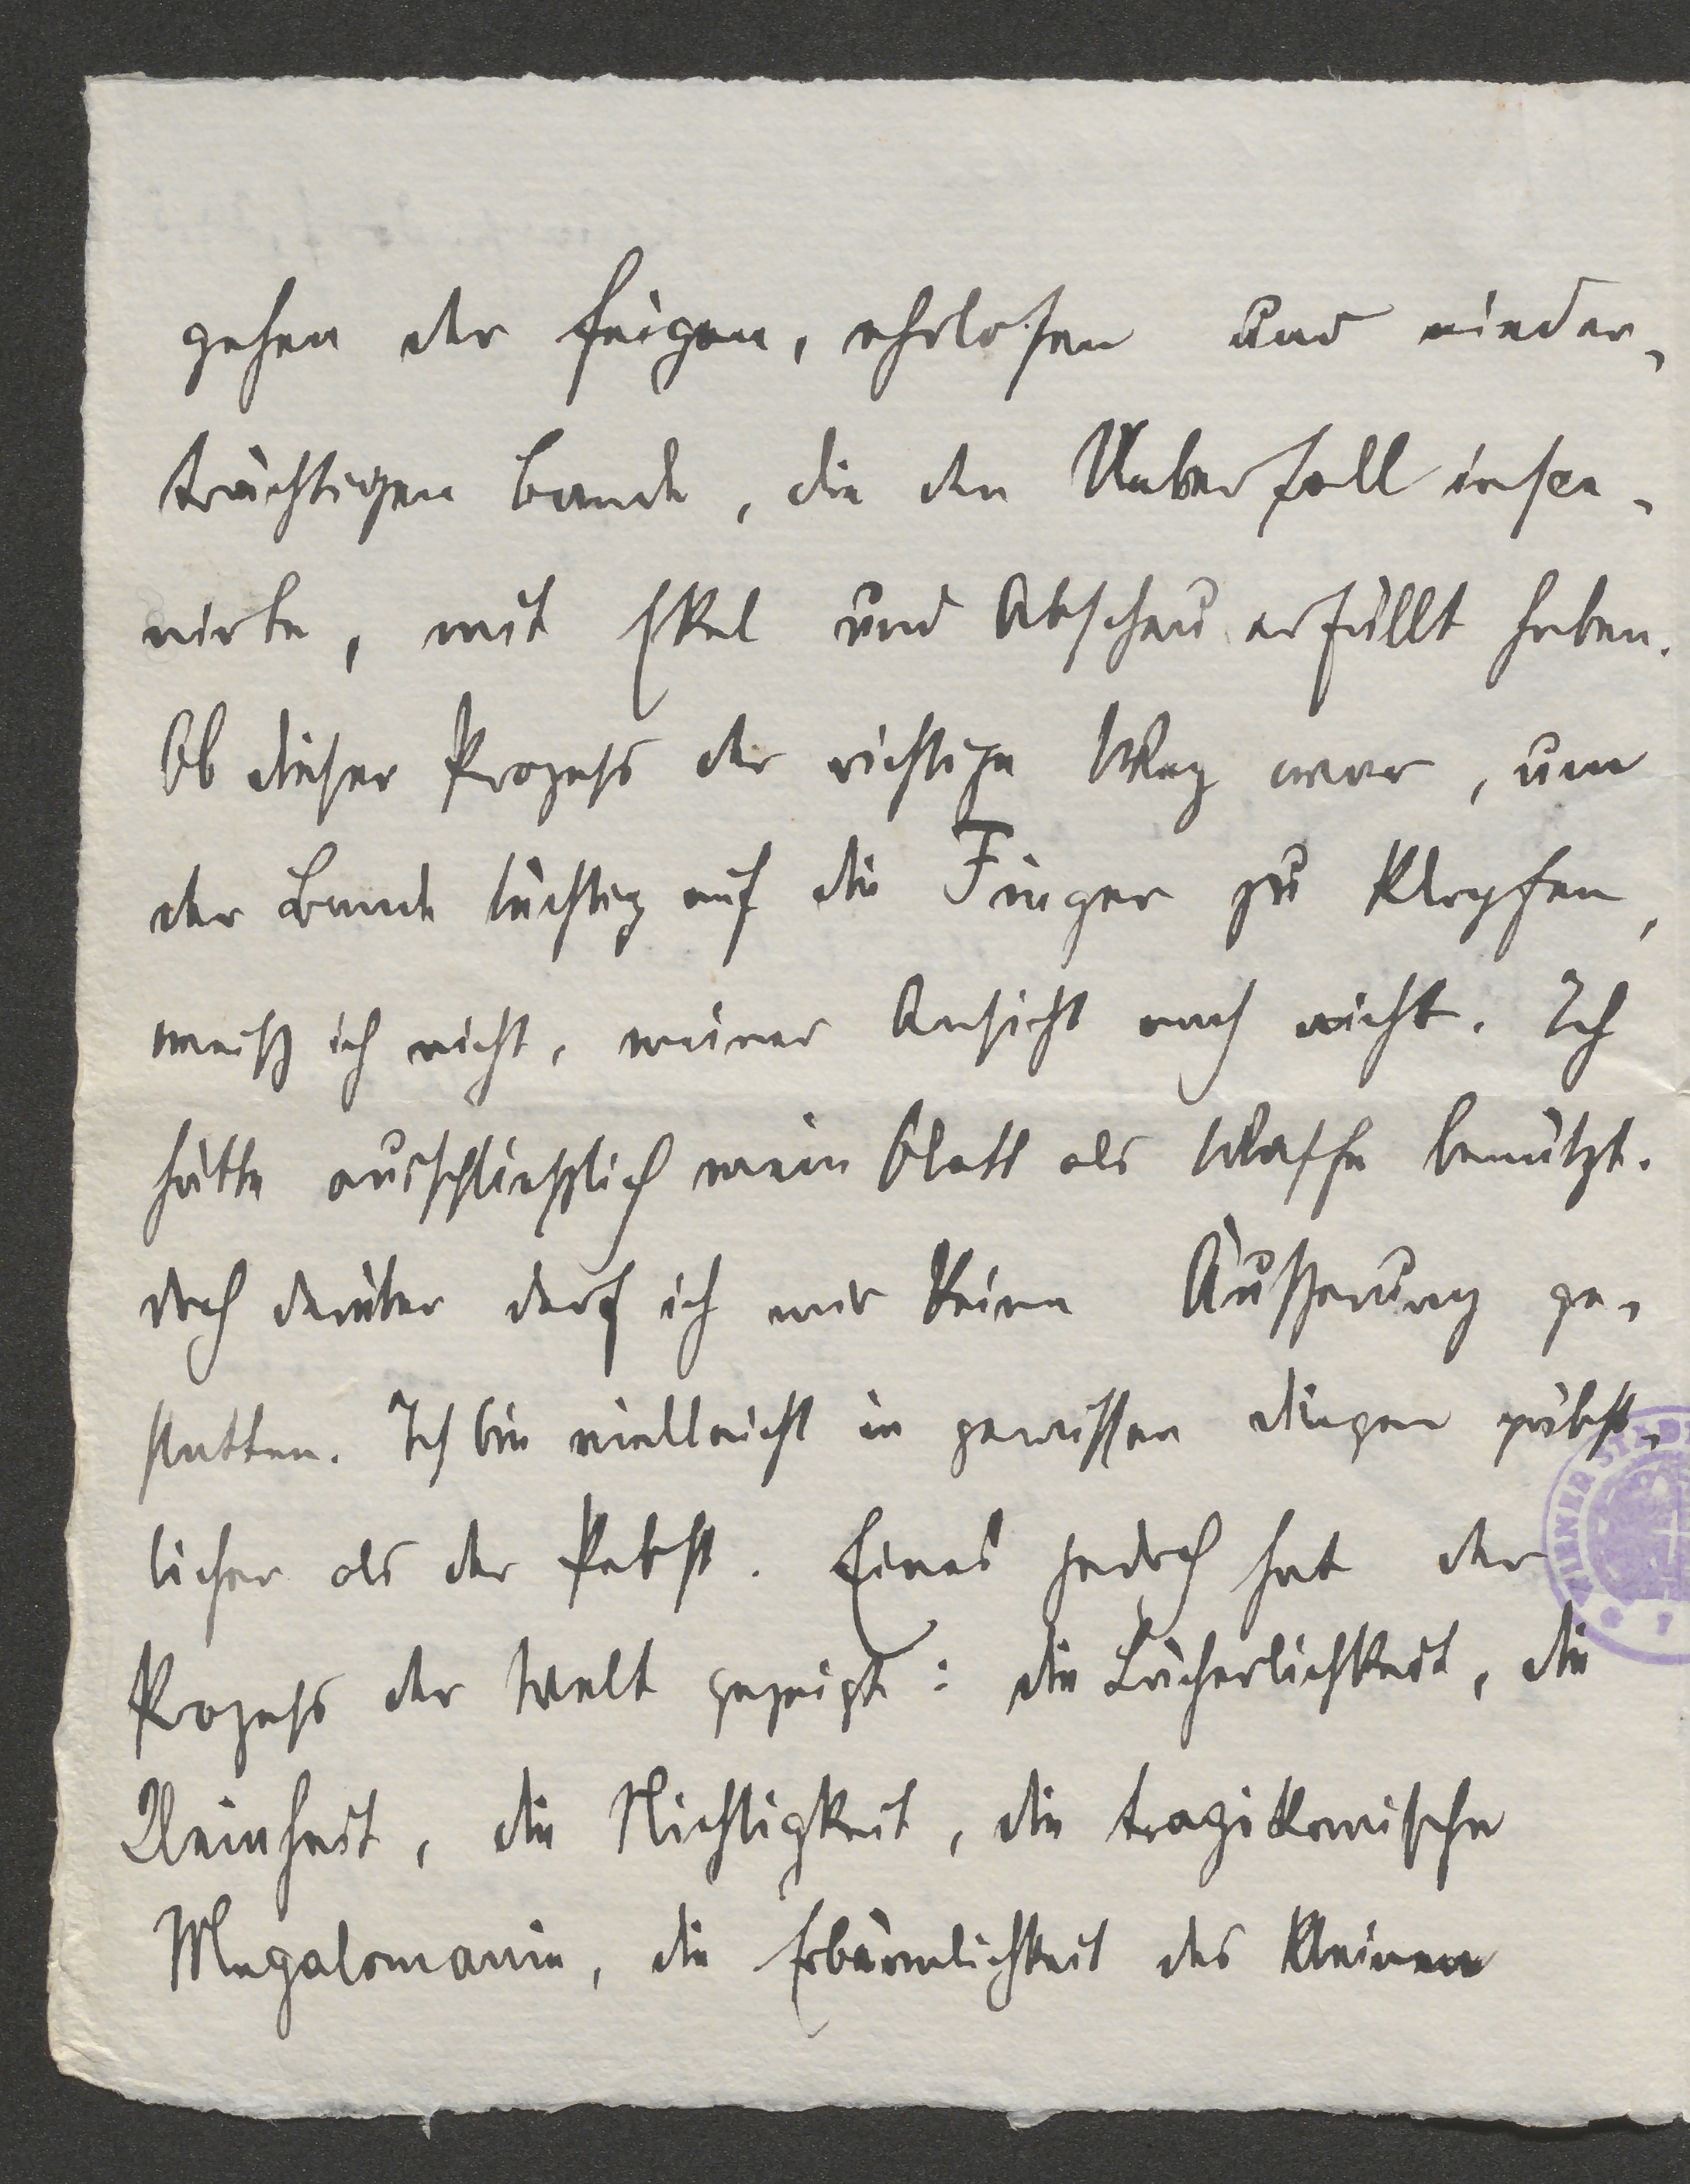 gehen der feigen, ehrlosen und nieder-
trächtigen Bande, die den Ueberfall insce-
nirte, mit Ekel und Abscheu erfüllt haben.
Ob dieser Prozess der richtige Weg war, um
der Bande tüchtig auf die Finger zu klopfen,
weiß ich nicht, meiner Ansicht nach nicht. Ich
hätte ausschliesslich mein Blatt als Waffe benützt.
doch darüber darf ich mir keine Äußerung ge-
statten. Ich bin vielleicht in gewissen dingen päbst-
licher als der Pabst. Eines jedoch hat der
Prozess der Welt gezeigt: die Lächerlichkeit, die
Kleinheit, die Nichtigkeit, die tragikomische
Megalomanie, die Erbärmlichkeit des kleinen
WIENER STADT